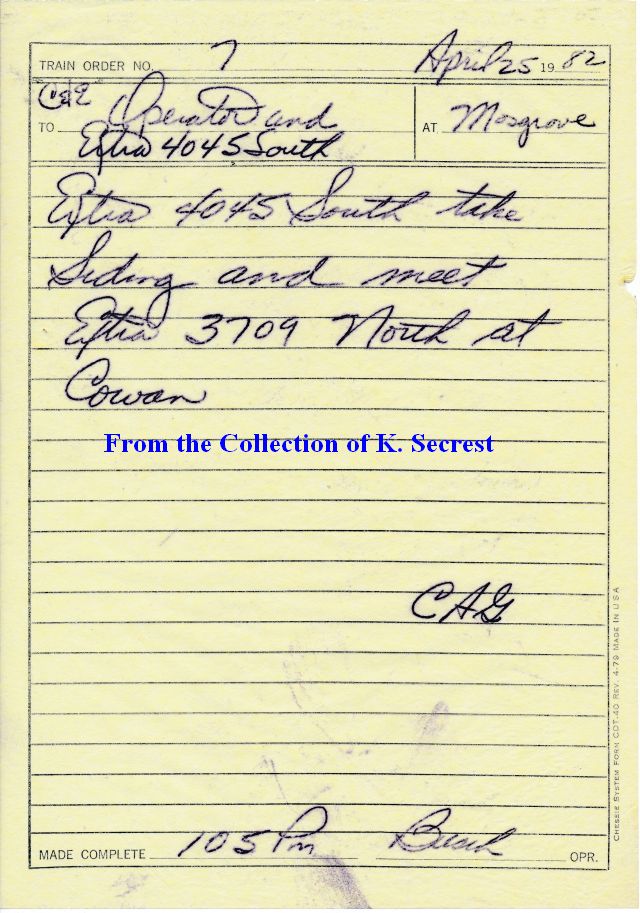 TRAIN ORDER NO. 7 April 25 19 82
C&E
TO Operator and AT Mosgrove
Extra 4045 South
Extra 4045 South take
Siding and meet
Extra 3709 North at
Cowan
From the Collection of K. Secrest
CAG
CHESSIE SYSTEM FORM CDT-40 REV. 4-79 MADE IN U S A
MADE COMPLETE 105 Pm Busch OPR.